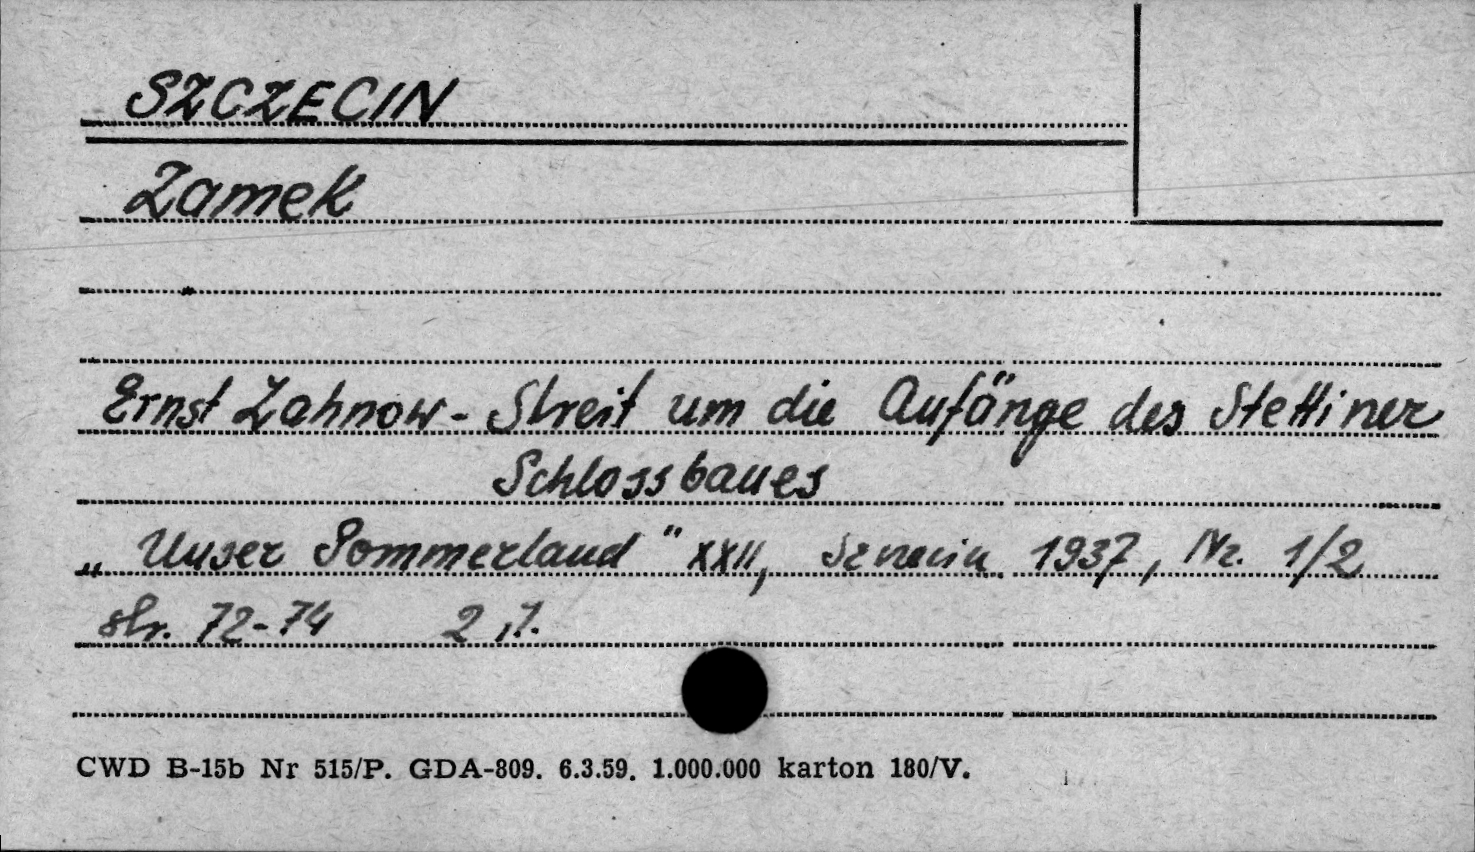 SZCZECIN
Zamek
Ernst Zahnow - Streit um die Anfänge des Stettiner
Schlossbaues
„Unser Pommerland" XXII, Szczecin 1937, Nr. 1/2
str. 72-74 2
CWD B-15b Nr 515/P. GDA-809. 6.3.59. 1.000.000 karton 180/V.